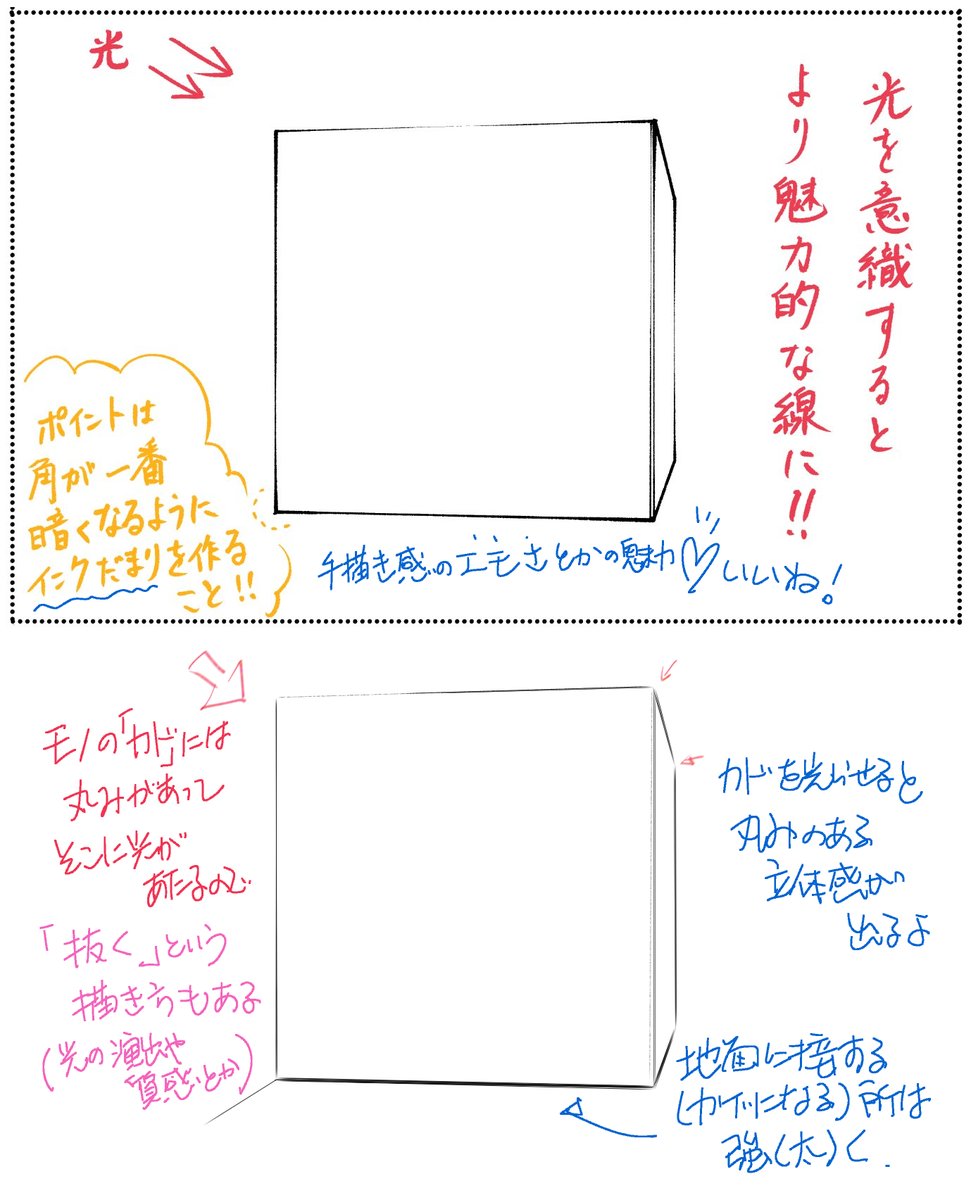 光
光を意識すると
より魅力的な線に!!
ポイントは
角が一番
暗くなるように
インクだまりを作る
こと!!
手描き感のエモさとかの魅力♡いいね!
モノの「カド」には
丸みがあって
そこに光が
あたるので
「抜く」という
描き方もある
(光の演出や
質感とか)
カドを光らせると
丸みのある
立体感が
出るよ
地面に接する
(カゲになる)所は
強(太)く.